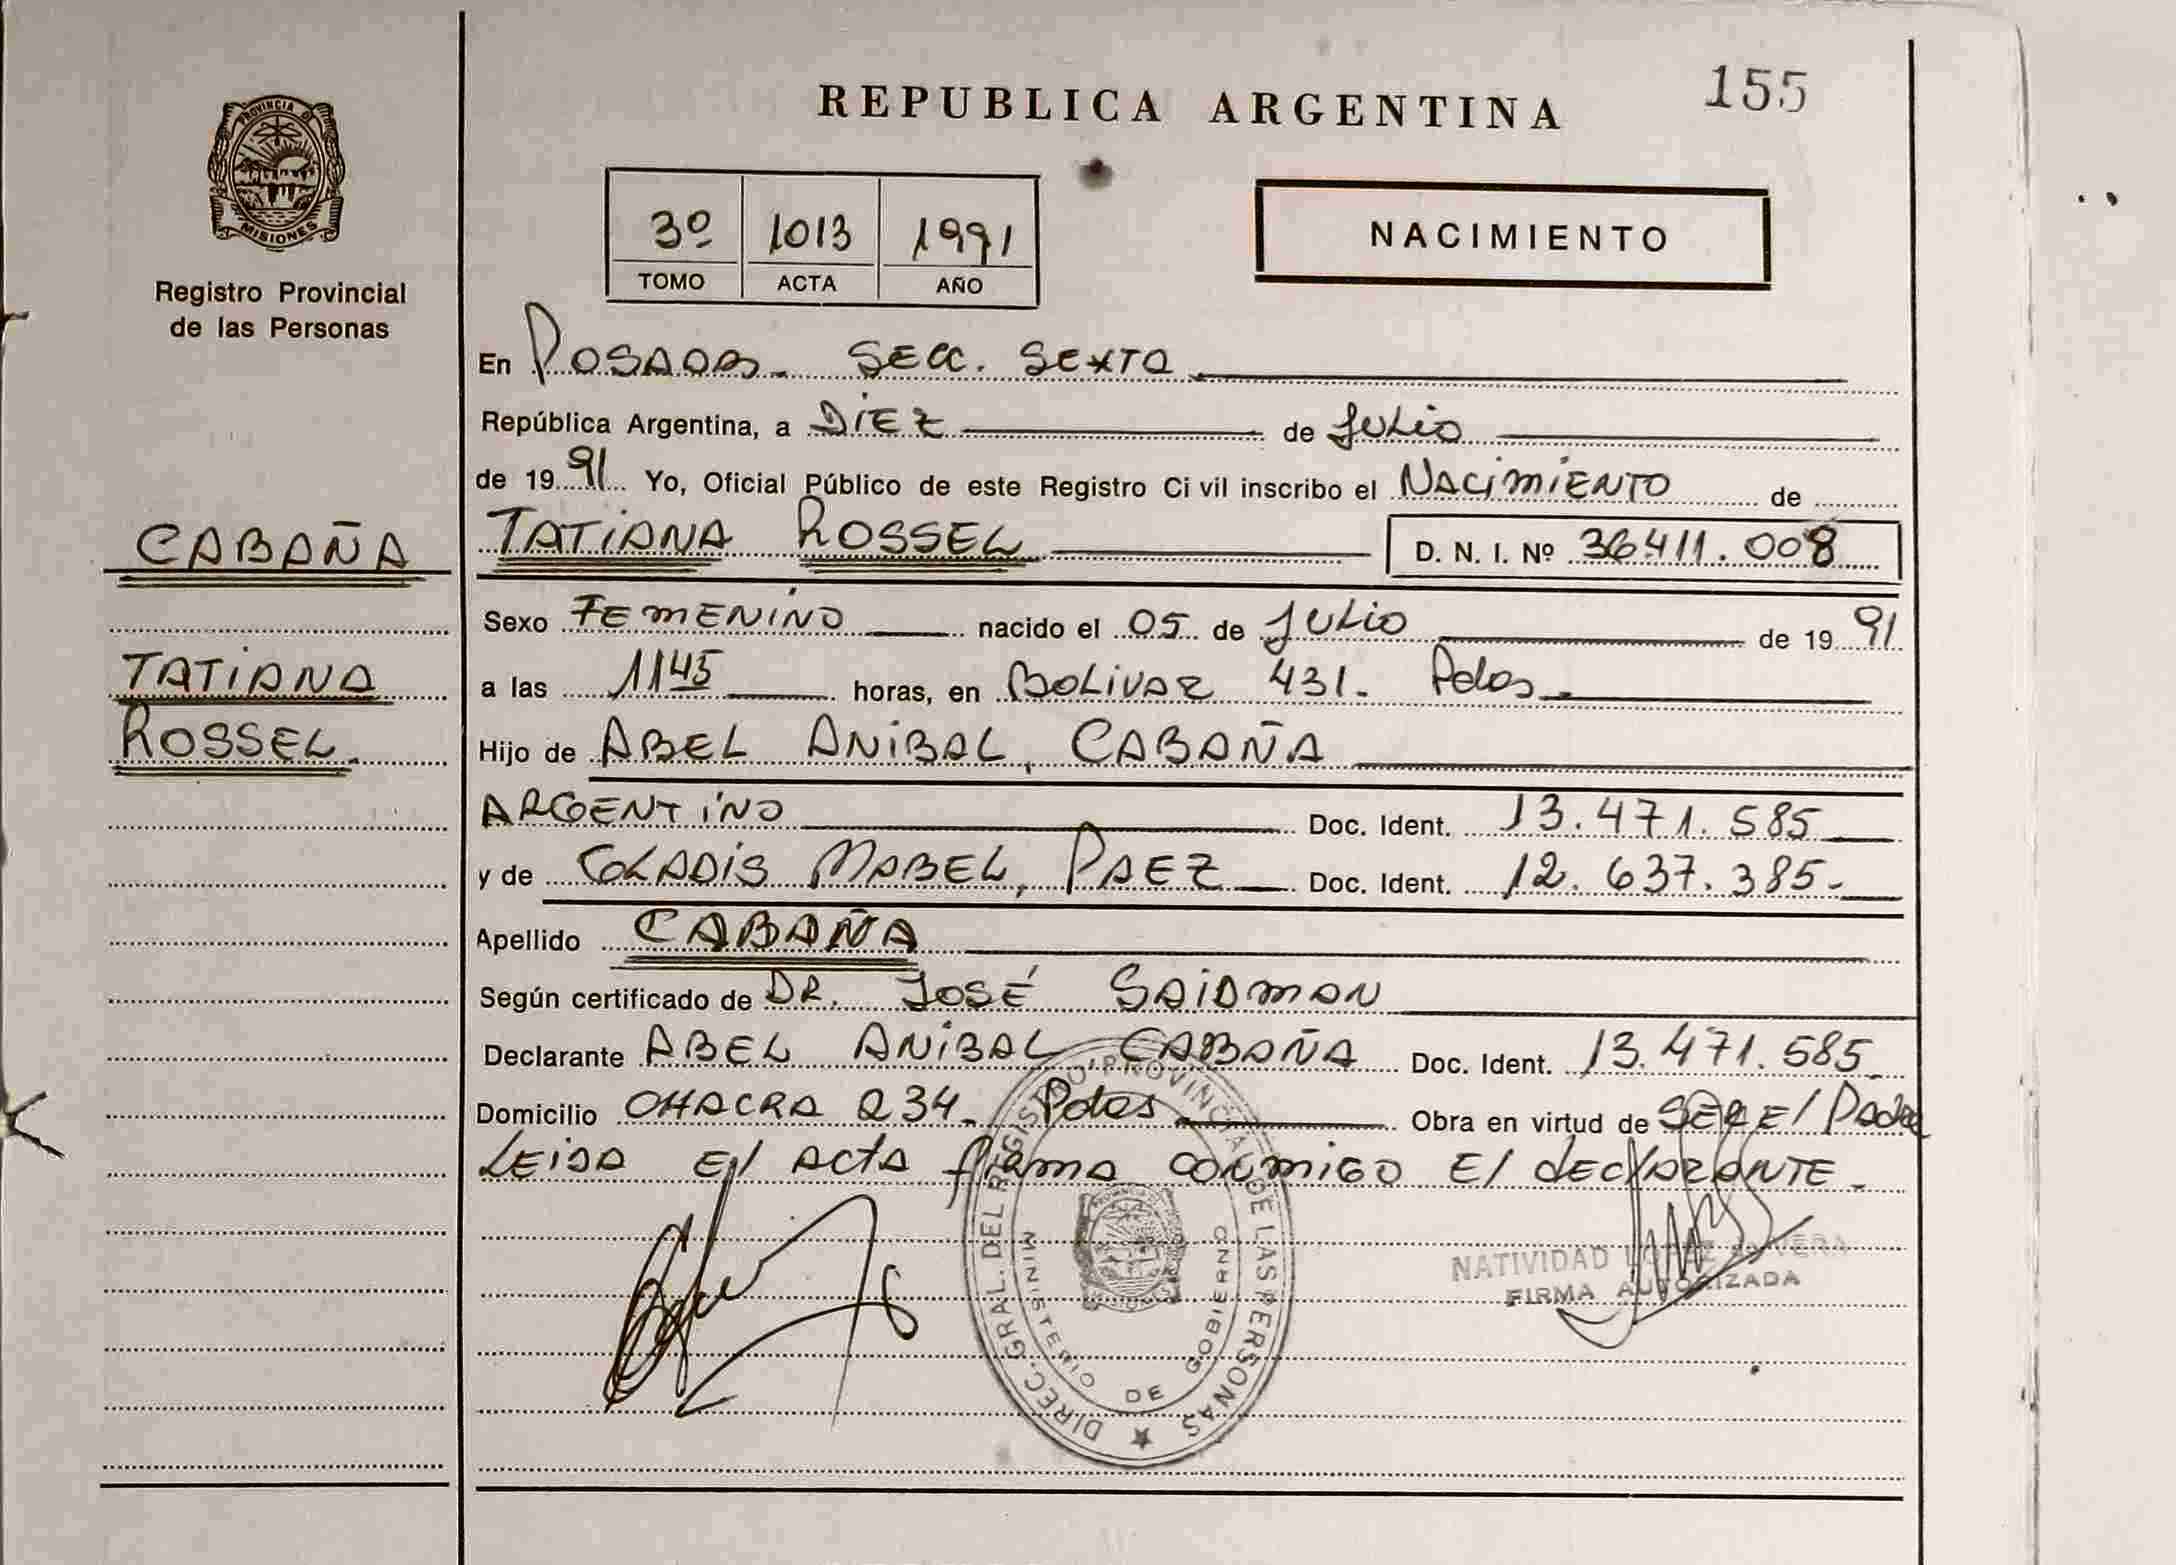 155
REPUBLICA ARGENTINA
PROVINCIA DE
MISIONES
Registro Provincial
de las Personas
3º 1013 1991
TOMO ACTA AÑO
NACIMIENTO
En POSADAS. SECC. SEXTA
República Argentina, a DIEZ de JULIO
de 1991 Yo, Oficial Público de este Registro Civil inscribo el NACIMIENTO de
CABAÑA
TATIANA ROSSEL D. N. I. Nº 36411.008
Sexo FEMENINO nacido el 05 de JULIO de 1991
TATIANA
a las 1145 horas, en BOLIVAR 431. Pdas.
ROSSEL.
Hijo de ABEL ANIBAL, CABAÑA
ARGENTINO Doc. Ident. 13.471.585
y de GLADIS MABEL, PAEZ Doc. Ident. 12.637.385.
Apellido CABAÑA
Según certificado de DR. JOSÉ SAIDMAN
Declarante ABEL ANIBAL CABAÑA Doc. Ident. 13.471.585
Domicilio CHACRA 234. Pdas Obra en virtud de SER El PADRE
LEIDA El ACTA firma CONMIGO El dECLARANTE.
DIREC. GRAL. DEL REGISTRO PROVINCIAL DE LAS PERSONAS
MINISTERIO DE GOBIERNO
NATIVIDAD
FIRMA AUTORIZADA